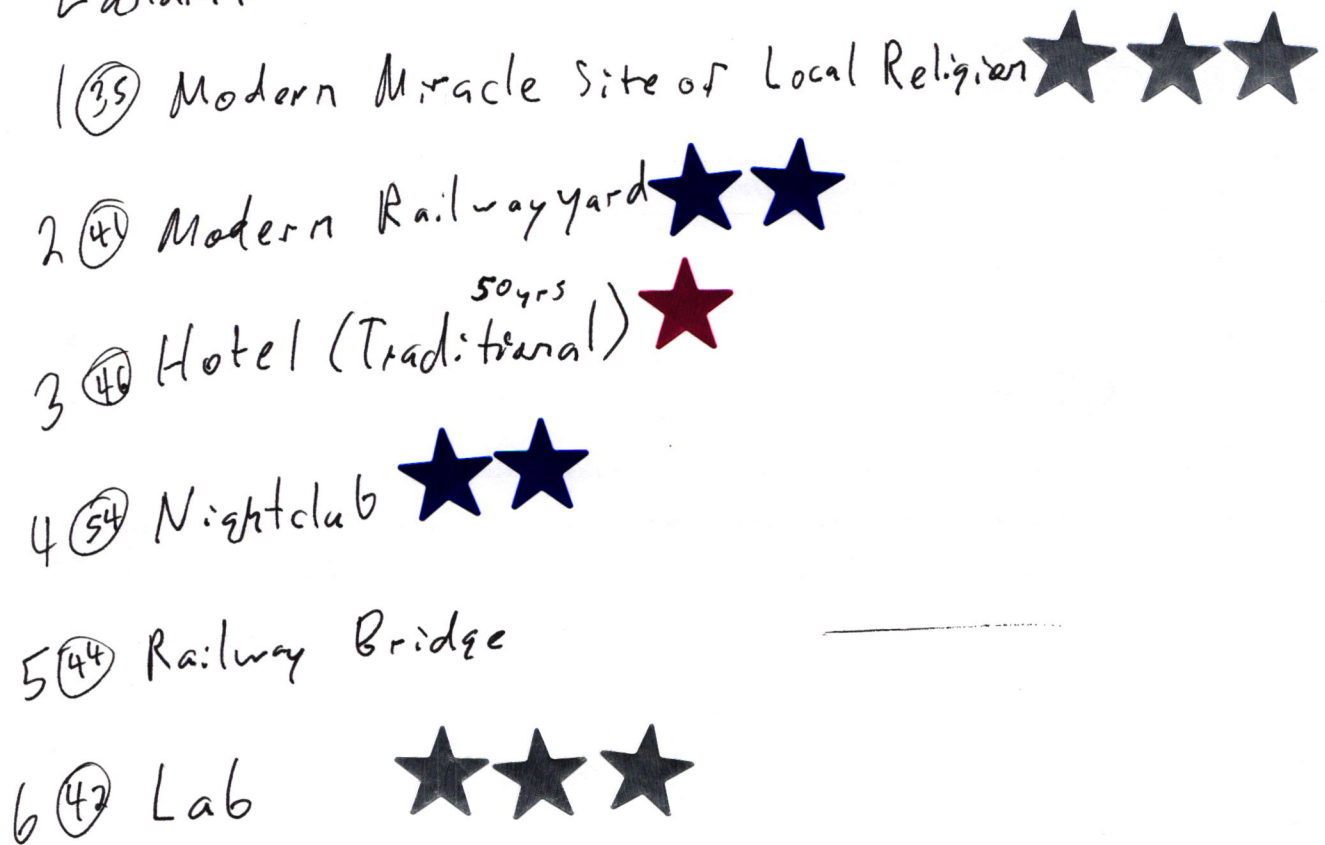 1 35 Modern Miracle Site of Local Religion
2 41 Modern Railway yard
50yrs
3 46 Hotel (Traditional)
4 54 Nightclub
5 44 Railway Bridge
6 42 Lab